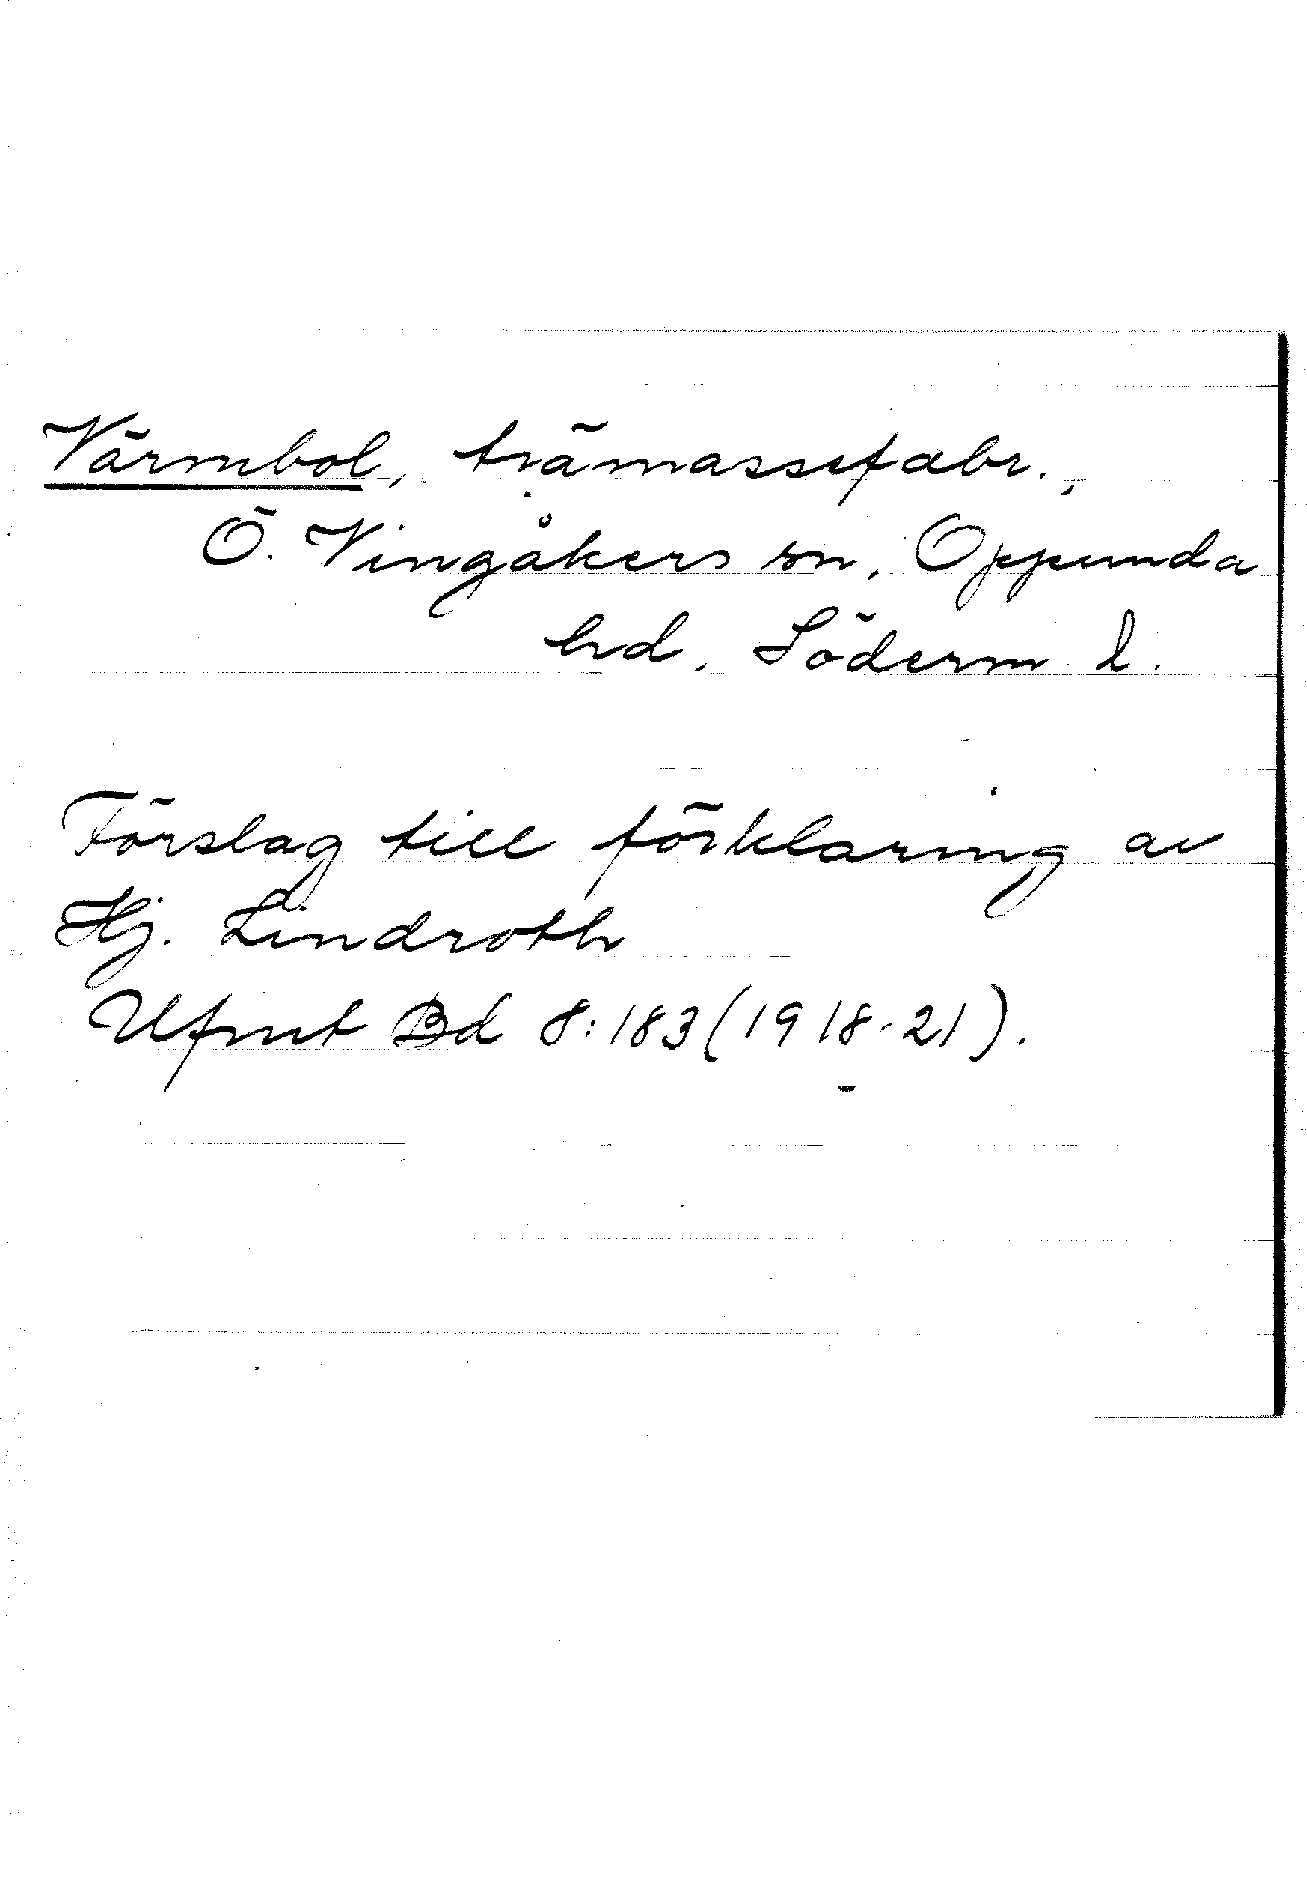 Värmbol, trämassefabr.,
Ö. Vingåkers sn, Oppunda
hd, Söderm. l.
Förslag till förklaring av
Hj. Lindroth
Ufmt Bd 8:183 (1918-21).